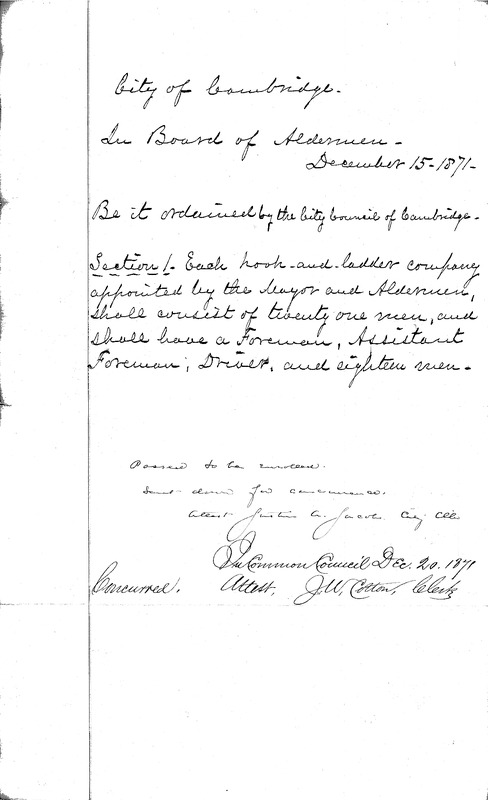 City of Cambridge.
In Board of Aldermen -
December 15 - 1871 -
Be it ordained by the City Council of Cambridge -
Section 1 - Each hook-and-ladder company
appointed by the Mayor and Aldermen,
shall consist of twenty one men, and
shall have a Foreman, Assistant
Foreman, Driver, and eighteen men -
Passed to be enrolled.
Sent down for concurrence.
Attest Justin A. Jacobs City Clk
In Common Council Dec. 20. 1871
Concurred. Attest, J. W. Cotton, Clerk